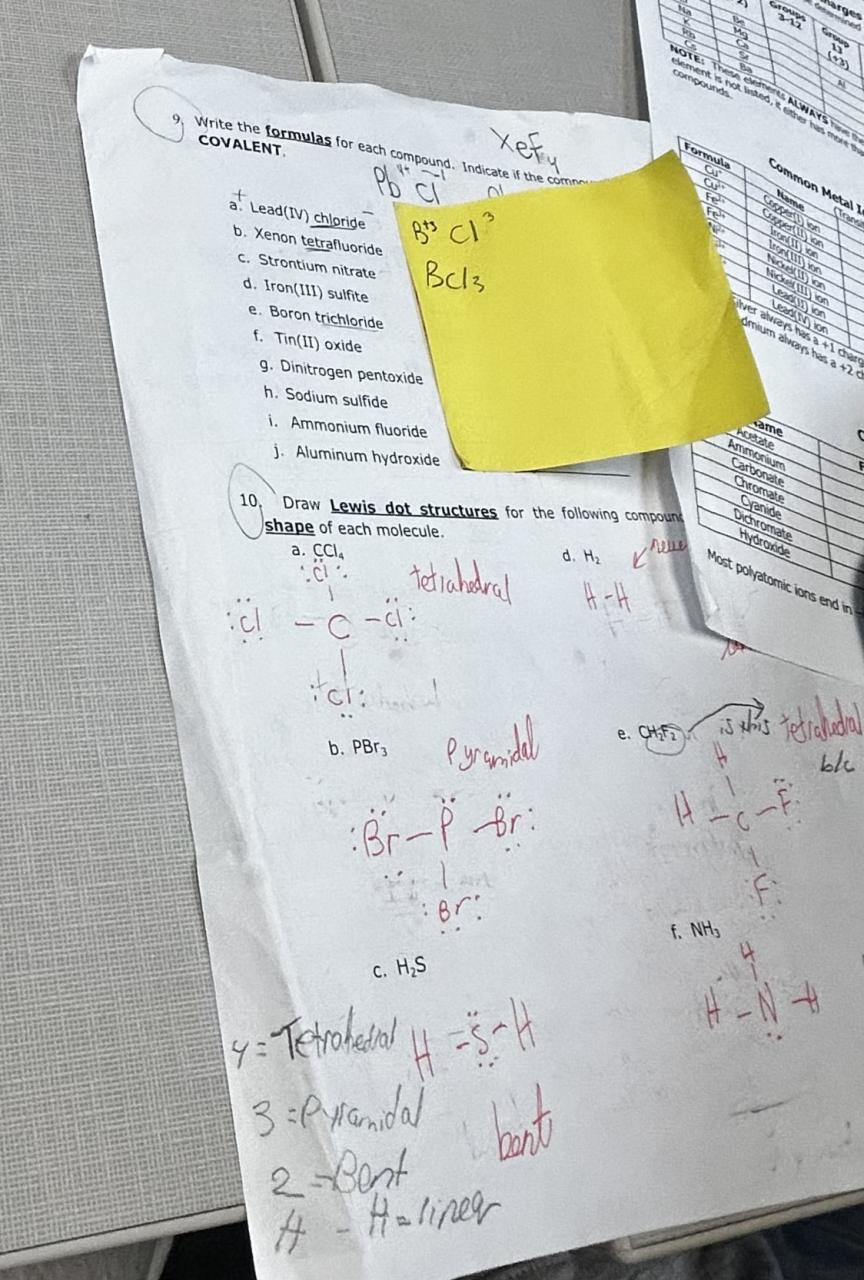 9. Write the formulas for each compound. Indicate if the
COVALENT.
XeF4
Pb 4+ Cl -1
a. Lead(IV) chloride
b. Xenon tetrafluoride
c. Strontium nitrate
d. Iron(III) sulfite
e. Boron trichloride
f. Tin(II) oxide
g. Dinitrogen pentoxide
h. Sodium sulfide
i. Ammonium fluoride
j. Aluminum hydroxide
B+3 Cl 3
BCl3
10. Draw Lewis dot structures for the following
shape of each molecule.
a. CCl4
tetrahedral
:Cl:
:Cl - C - Cl:
:Cl:
b. PBr3
Pyramidal
:Br - P - Br:
:Br:
c. H2S
H - S - H
bent
d. H2
H - H
e. CH2F2
is this tetrahedral
b/c
H
H - C - F:
F:
f. NH3
H
H - N - H
4 = Tetrahedral
3 = Pyramidal
2 = Bent
H - H = linear
Groups
3-12
Group
13
(+3)
Na
K
Rb
Cs
Be
Mg
Ca
Sr
Ba
Al
NOTE: These elements ALWAYS have
element is not listed, it either has more
compounds.
Common Metal
Formula
Name
Cu+
Copper(I) ion
Cu2+
Copper(II) ion
Fe2+
Iron(II) ion
Fe3+
Iron(III) ion
Nickel(II) ion
Nickel(III) ion
Lead(II) ion
Lead(IV) ion
always has a +1
always has a +2
Acetate
Ammonium
Carbonate
Chromate
Cyanide
Dichromate
Hydroxide
Most polyatomic ions end in